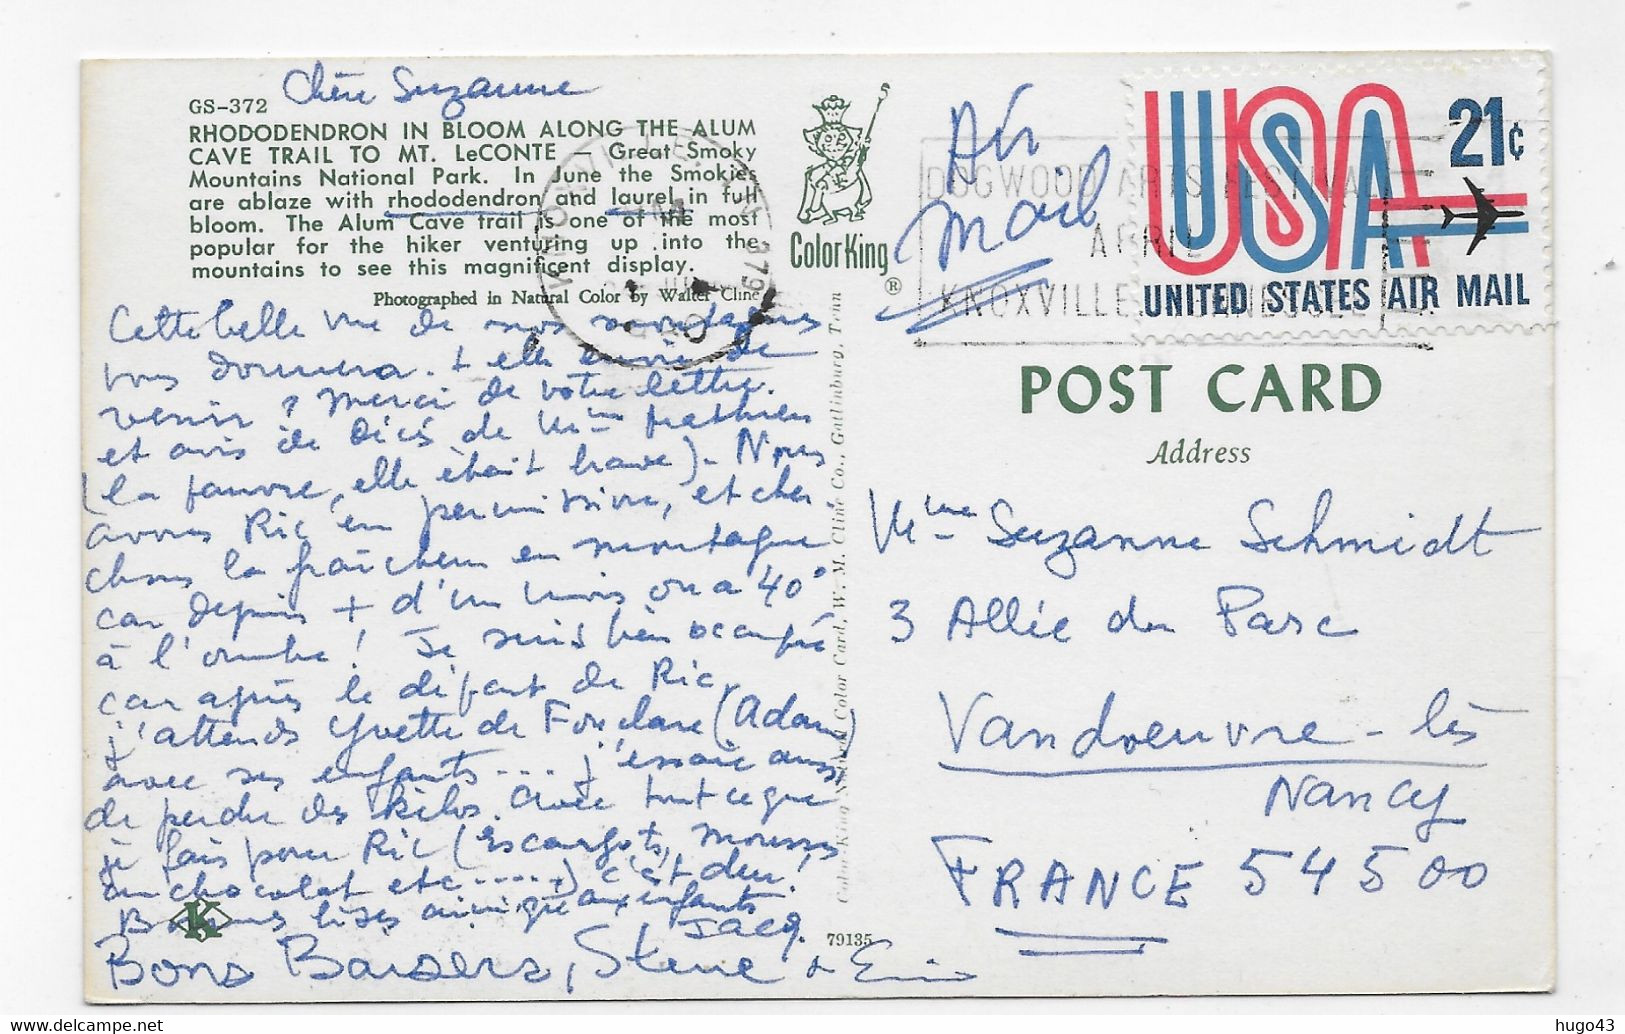 Chère Suzanne
GS-372
RHODODENDRON IN BLOOM ALONG THE ALUM
CAVE TRAIL TO MT. LeCONTE — Great Smoky
Mountains National Park. In June the Smokies
are ablaze with rhododendron and laurel in full
bloom. The Alum Cave trail is one of the most
popular for the hiker venturing up into the
mountains to see this magnificent display.
Photographed in Natural Color by Walter Cline
Cette belle vue de nos montagnes
vous donnera-t-elle envie de
venir ? Merci de votre lettre
et avis de décès de Mme Mathieu
(la pauvre, elle était brave). Nous
avons Ric en permission, et cher
chons la fraîcheur en montagne
car depuis + d'un mois on a 40°
à l'ombre ! Je suis bien occupée
car après le départ de Ric,
j'attends Yvette de (Adam)
avec ses enfants.... j'essaie aussi
de perdre des kilos. avec tout ce que
je fais pour Ric (Escargots, mousses
au chocolat etc.....) c'est dur!
Bonnes bises ainsi que aux enfants
Jacq.
Bons Baisers, Steve &
K
ColorKing
®
Color King Natural Color Card, W. M. Cline Co., Gatlinburg, Tenn
79135
Air
Mail
DOGWOOD ARTS FESTIVAL
APRIL
KNOXVILLE
KNOXVILLE TN
USA 21¢
UNITED STATES AIR MAIL
POST CARD
Address
Mme Suzanne Schmidt
3 Allée du Parc
Vandoeuvre-lès
Nancy
FRANCE 54500
hugo43
delcampe.net